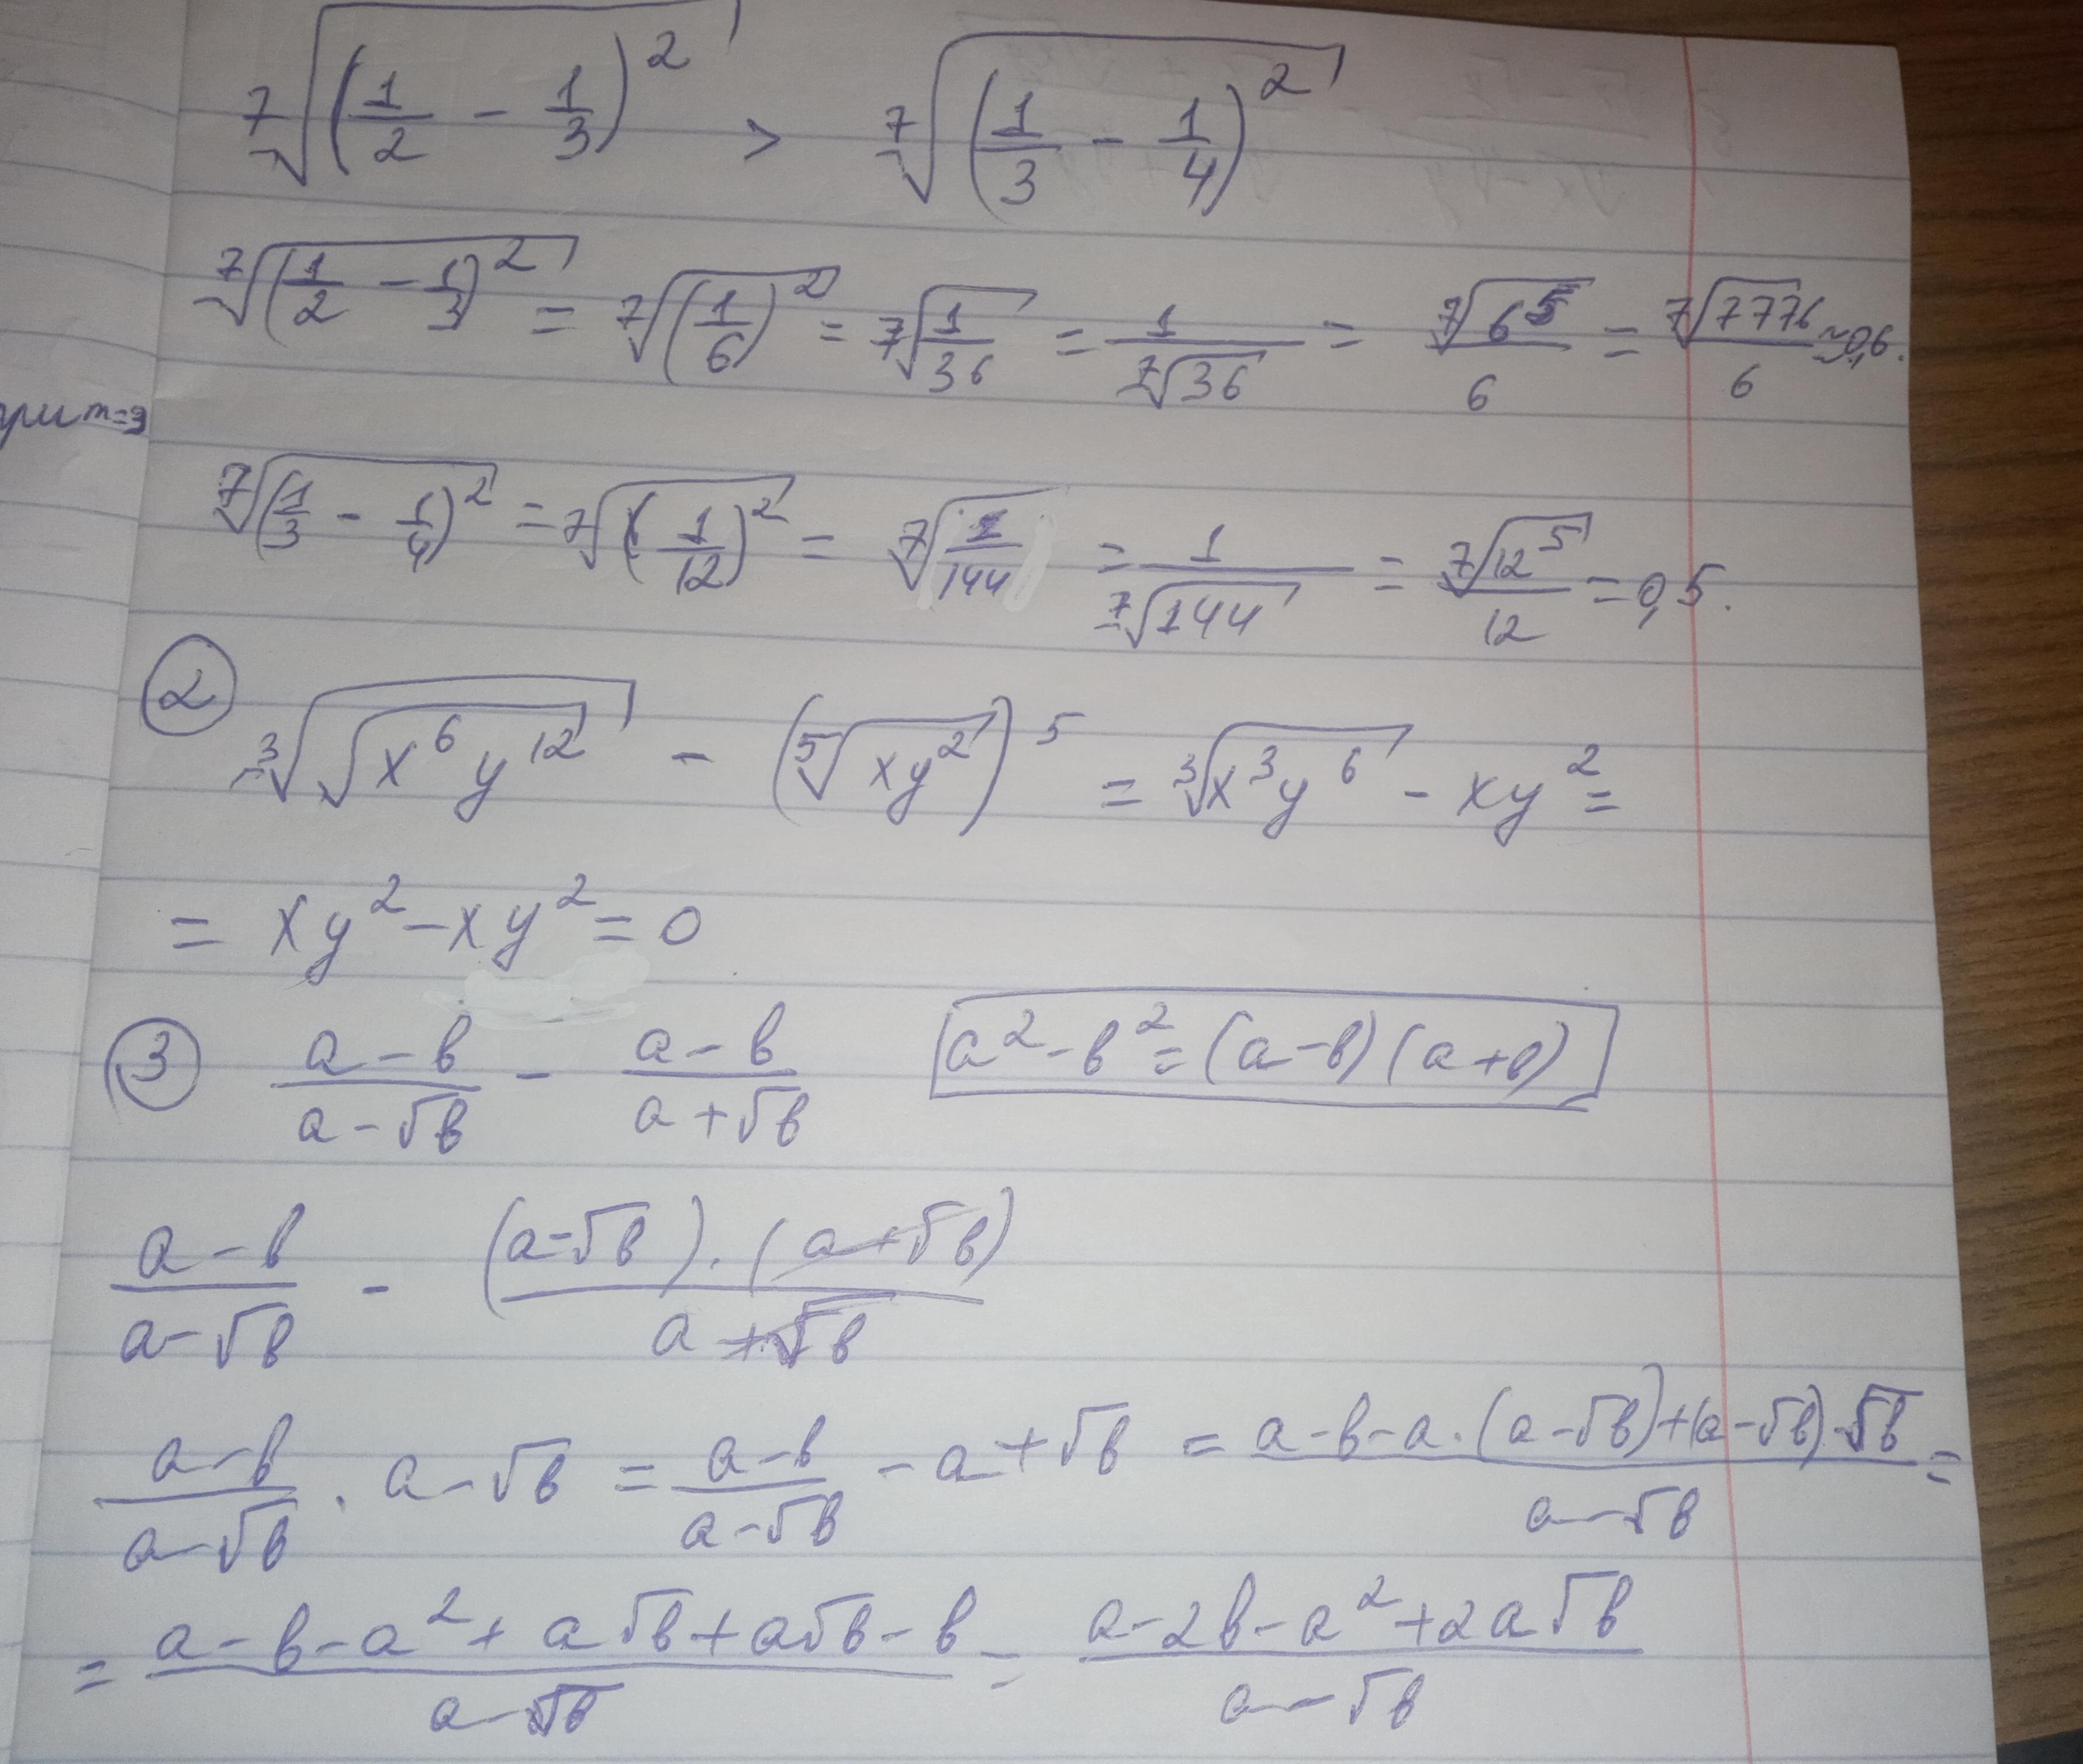 ⁷√((1/2 - 1/3)²) > ⁷√((1/3 - 1/4)²)
⁷√((1/2 - 1/3)²) = ⁷√((1/6)²) = ⁷√(1/36) = 1/⁷√36 = ⁷√(6⁵)/6 = ⁷√7776/6 ≈ 0,6.
при m=3
⁷√((1/3 - 1/4)²) = ⁷√((1/12)²) = ⁷√(1/144) = 1/⁷√144 = ⁷√(12⁵)/12 = 0,5.
②
³√(√(x⁶y¹²)) - (⁵√(xy²))⁵ = ³√(x³y⁶) - xy² =
= xy² - xy² = 0
③ (a-b)/(a-√b) - (a-b)/(a+√b) a² - b² = (a-b)(a+b)
(a-b)/(a-√b) - ((a-√b)·(a+√b))/(a+√b)
(a-b)/(a-√b) · a-√b = (a-b)/(a-√b) - a+√b = (a-b-a·(a-√b)+(a-√b)·√b)/(a-√b) =
= (a-b-a²+a√b+a√b-b)/(a-√b) = (a-2b-a²+2a√b)/(a-√b)